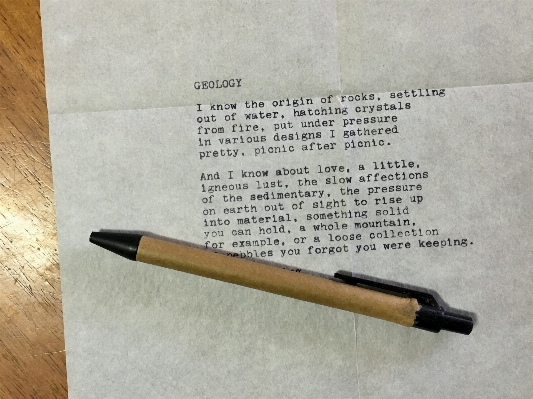 GEOLOGY
I know the origin of rocks, settling
out of water, hatching crystals
from fire, put under pressure
in various designs I gathered
pretty, picnic after picnic.
And I know about love, a little,
igneous lust, the slow affections
of the sedimentary, the pressure
on earth out of sight to rise up
into material, something solid
you can hold, a whole mountain,
for example, or a loose collection
pebbles you forgot you were keeping.